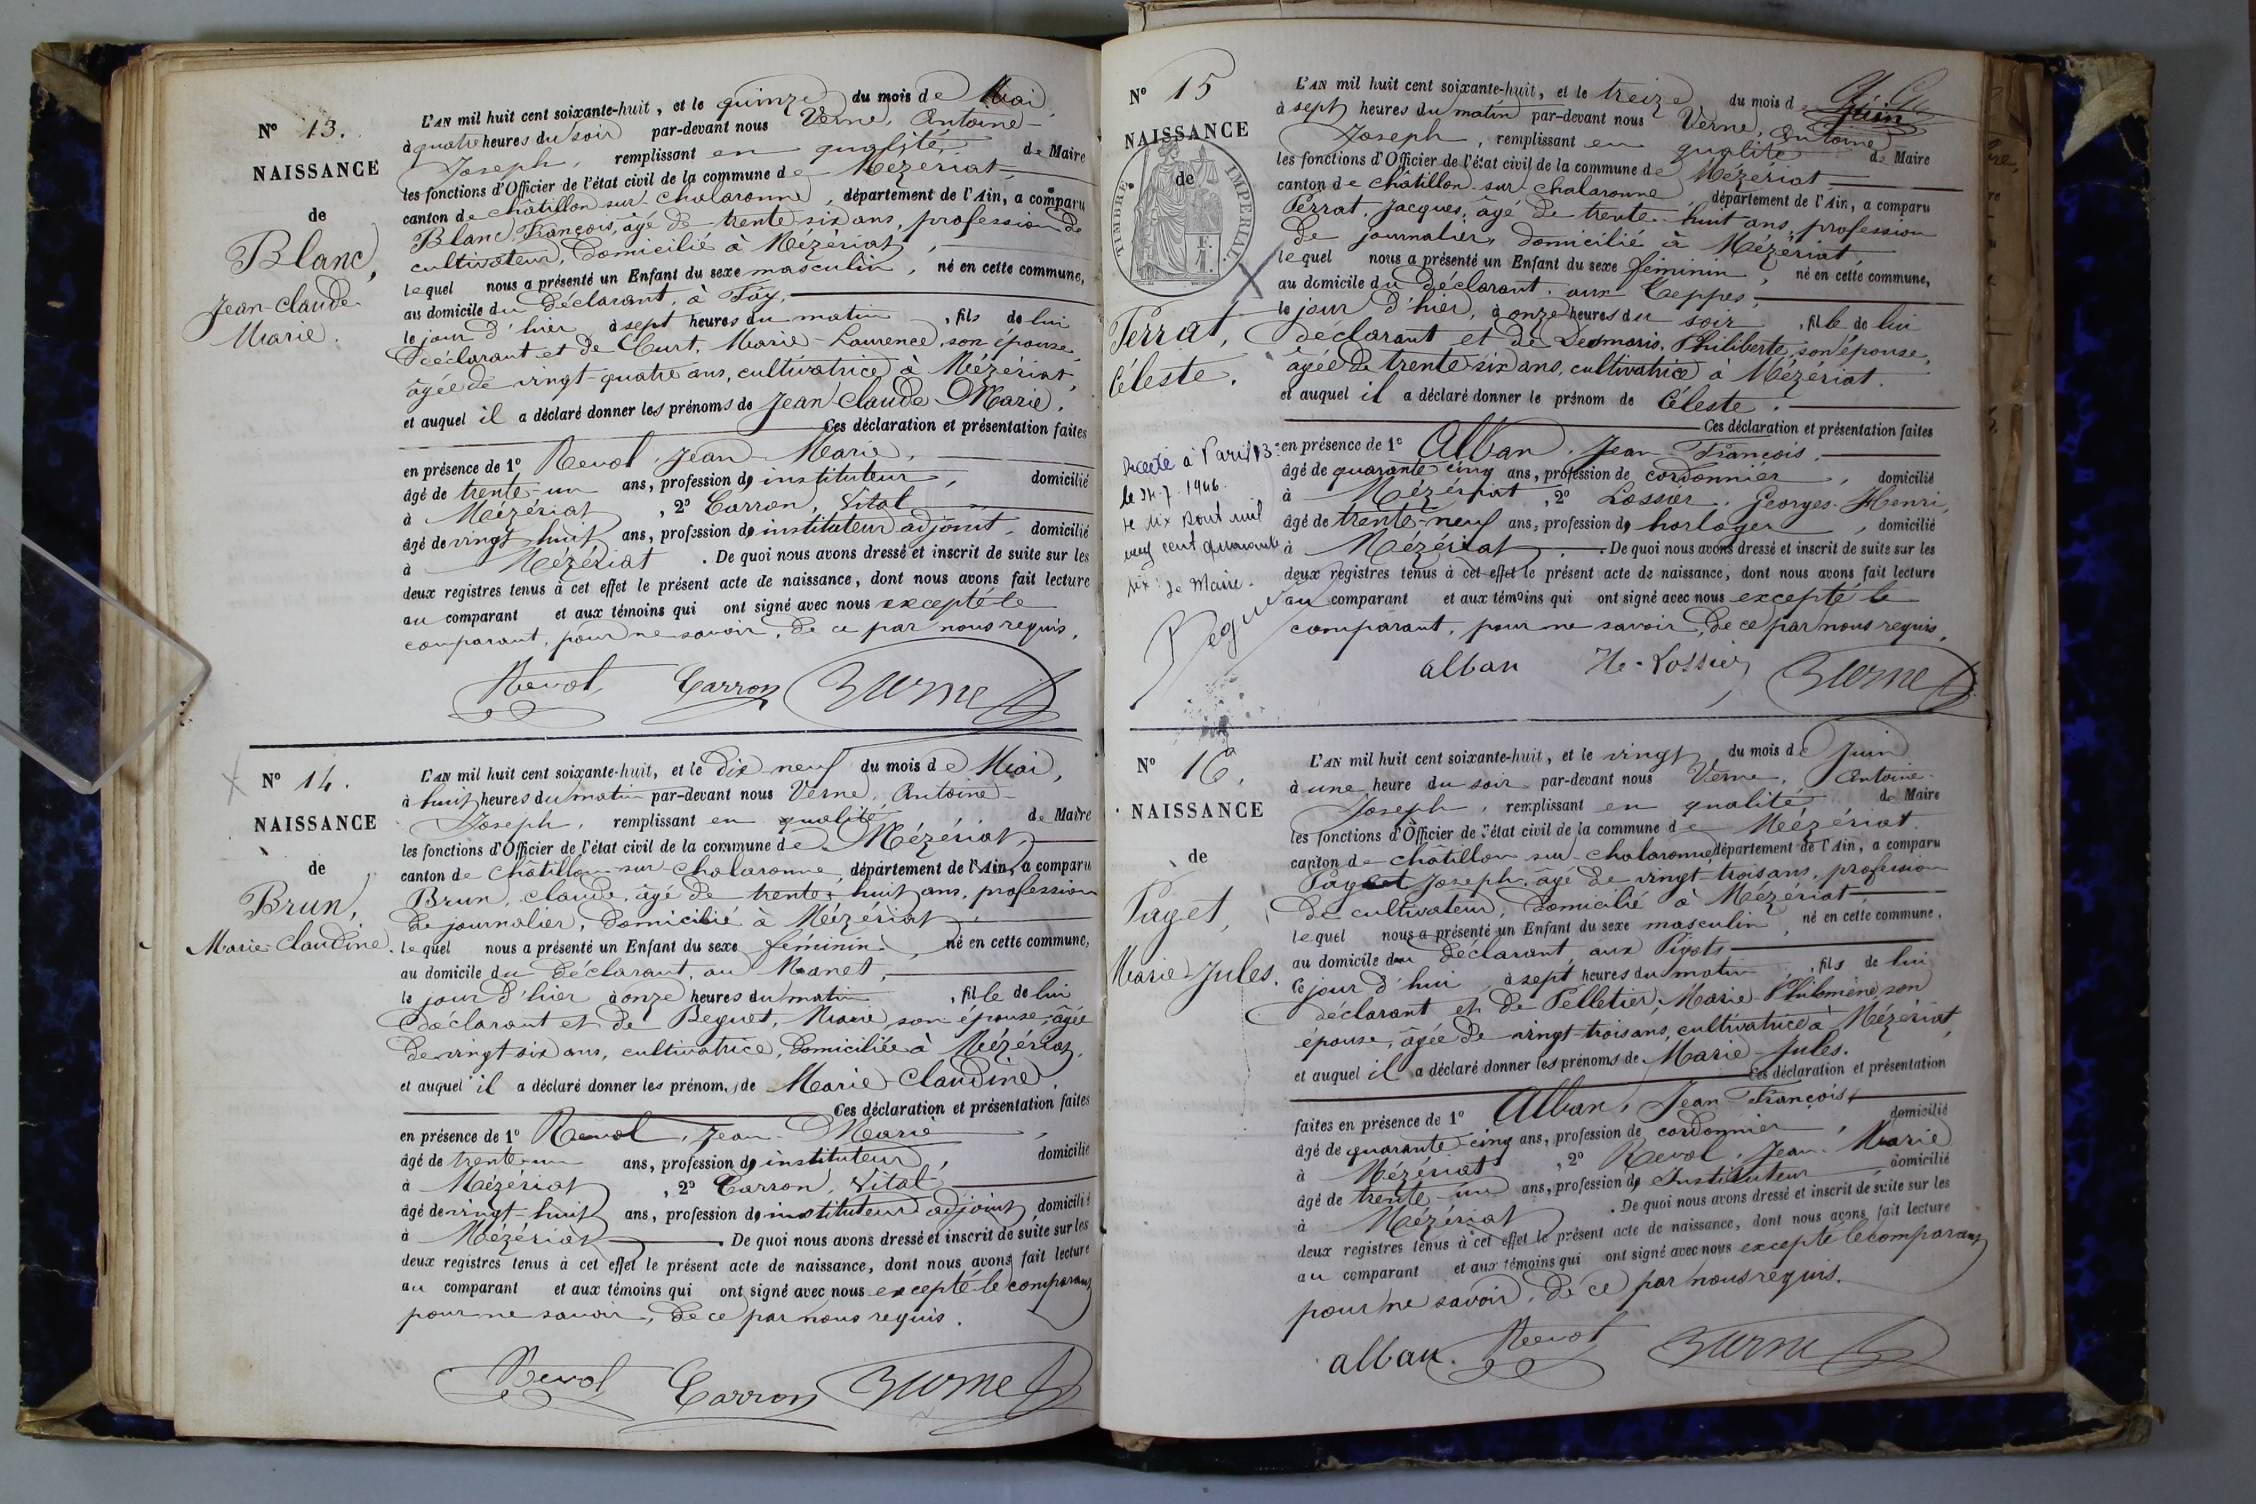 N° 13.
NAISSANCE
de
Blanc,
Jean-Claude-
Marie.
L'AN mil huit cent soixante-huit, et le quinze du mois de Mai,
à quatre heures du soir par-devant nous Verne, Antoine-
Joseph, remplissant en qualité de Maire
les fonctions d'Officier de l'état civil de la commune de Mézériat,
canton de Châtillon-sur-Chalaronne, département de l'Ain, a comparu
Blanc, François, âgé de trente-six ans, profession de
cultivateur, domicilié à Mézériat,
lequel nous a présenté un Enfant du sexe masculin, né en cette commune,
au domicile du déclarant, à Fay,
le jour d'hier à sept heures du matin, fils de lui
déclarant et de Curt, Marie-Laurence, son épouse,
âgée de vingt-quatre ans, cultivatrice à Mézériat,
et auquel il a déclaré donner les prénoms de Jean-Claude-Marie.
Ces déclaration et présentation faites
en présence de 1° Revol, Jean-Marie,
âgé de trente-un ans, profession de instituteur, domicilié
à Mézériat, 2° Carron, Vital
âgé de vingt-huit ans, profession de instituteur adjoint, domicilié
à Mézériat. De quoi nous avons dressé et inscrit de suite sur les
deux registres tenus à cet effet le présent acte de naissance, dont nous avons fait lecture
au comparant et aux témoins qui ont signé avec nous excepté le
comparant, pour ne savoir, de ce par nous requis.
Revol Carron Verne
N° 14.
NAISSANCE
de
Brun,
Marie-Claudine.
L'AN mil huit cent soixante-huit, et le dix neuf du mois de Mai,
à huit heures du matin par-devant nous Verne, Antoine-
Joseph, remplissant en qualité de Maire
les fonctions d'Officier de l'état civil de la commune de Mézériat,
canton de Châtillon-sur-Chalaronne, département de l'Ain, a comparu
Brun, Claude, âgé de trente-huit ans, profession
de journalier, domicilié à Mézériat,
lequel nous a présenté un Enfant du sexe féminin, né en cette commune,
au domicile du déclarant, au Manet,
le jour d'hier à onze heures du matin, fille de lui
déclarant et de Beguet, Marie, son épouse, âgée
de vingt-six ans, cultivatrice, domiciliée à Mézériat,
et auquel il a déclaré donner les prénoms de Marie-Claudine.
Ces déclaration et présentation faites
en présence de 1° Revol, Jean-Marie,
âgé de trente-un ans, profession de instituteur, domicilié
à Mézériat, 2° Carron, Vital,
âgé de vingt-huit ans, profession de instituteur adjoint, domicilié
à Mézériat. De quoi nous avons dressé et inscrit de suite sur les
deux registres tenus à cet effet le présent acte de naissance, dont nous avons fait lecture
au comparant et aux témoins qui ont signé avec nous excepté le comparant
pour ne savoir, de ce par nous requis.
Revol Carron Verne
N° 15
NAISSANCE
de
TIMBRE IMPERIAL
Perrat,
Céleste.
Décédé à Paris 13e
le 24.7.1946.
le dix août mil
neuf cent quarante
six: Le Maire.
L'AN mil huit cent soixante-huit, et le treize du mois de Juin
à sept heures du matin par-devant nous Verne, Antoine
Joseph, remplissant en qualité de Maire
les fonctions d'Officier de l'état civil de la commune de Mézériat,
canton de Châtillon-sur-Chalaronne, département de l'Ain, a comparu
Perrat, Jacques, âgé de trente-huit ans, profession
de journalier, domicilié à Mézériat,
lequel nous a présenté un Enfant du sexe féminin, né en cette commune,
au domicile du déclarant, aux Teppes,
le jour d'hier, à onze heures du soir, fille de lui
déclarant et de Desmaris, Philiberte, son épouse,
âgée de trente-six ans, cultivatrice à Mézériat.
et auquel il a déclaré donner le prénom de Céleste.
Ces déclaration et présentation faites
en présence de 1° Alban, Jean-François,
âgé de quarante cinq ans, profession de cordonnier, domicilié
à Mézériat, 2° Lossier, Georges-Henri,
âgé de trente-neuf ans, profession de horloger, domicilié
à Mézériat. De quoi nous avons dressé et inscrit de suite sur les
deux registres tenus à cet effet le présent acte de naissance, dont nous avons fait lecture
au comparant et aux témoins qui ont signé avec nous excepté le
comparant, pour ne savoir, de ce par nous requis.
alban He-Lossier Verne
N° 16.
NAISSANCE
de
Paget,
Marie-Jules.
L'AN mil huit cent soixante-huit, et le vingt du mois de Juin
à une heure du soir par-devant nous Verne, Antoine-
Joseph, remplissant en qualité de Maire
les fonctions d'Officier de l'état civil de la commune de Mézériat.
canton de Châtillon-sur-Chalaronne, département de l'Ain, a comparu
Paget Joseph, âgé de vingt-trois ans, profession
de cultivateur, domicilié à Mézériat,
lequel nous a présenté un Enfant du sexe masculin, né en cette commune,
au domicile du déclarant, aux Pigots
ce jour d'hui, à sept heures du matin, fils de lui
déclarant et de Pelletier, Marie-Philomène, son
épouse, âgée de vingt-trois ans, cultivatrice à Mézériat,
et auquel il a déclaré donner les prénoms de Marie-Jules.
Ces déclaration et présentation
faites en présence de 1° Alban, Jean-François,
âgé de quarante-cinq ans, profession de cordonnier, domicilié
à Mézériat, 2° Revol, Jean-Marie
âgé de trente-un ans, profession de Instituteur domicilié
à Mézériat. De quoi nous avons dressé et inscrit de suite sur les
deux registres tenus à cet effet le présent acte de naissance, dont nous avons fait lecture
au comparant et aux témoins qui ont signé avec nous excepté le comparant
pour ne savoir, de ce par nous requis.
alban. Revol Verne